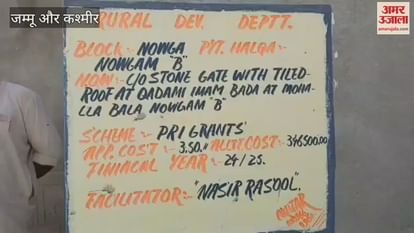 जम्मू और कश्मीर
अमर उजाला
amarujala.com
RURAL DEV. DEPTT.
BLOCK:- NOWGA P/T. HALQA:-
NOWGAM "B"
NOW:- C/O STONE GATE WITH TILED-
ROOF AT QADAMI IMAM BADA AT MOHA-
LLA BALA NOWGAM "B"
SCHEME:- PRI GRANTS'
APP. COST:- 3.50/= ALLTT. COST:- 346500.00
FINIACAL YEAR:- 24/25.
FACILITATOR:- "NASIR RASOOL".